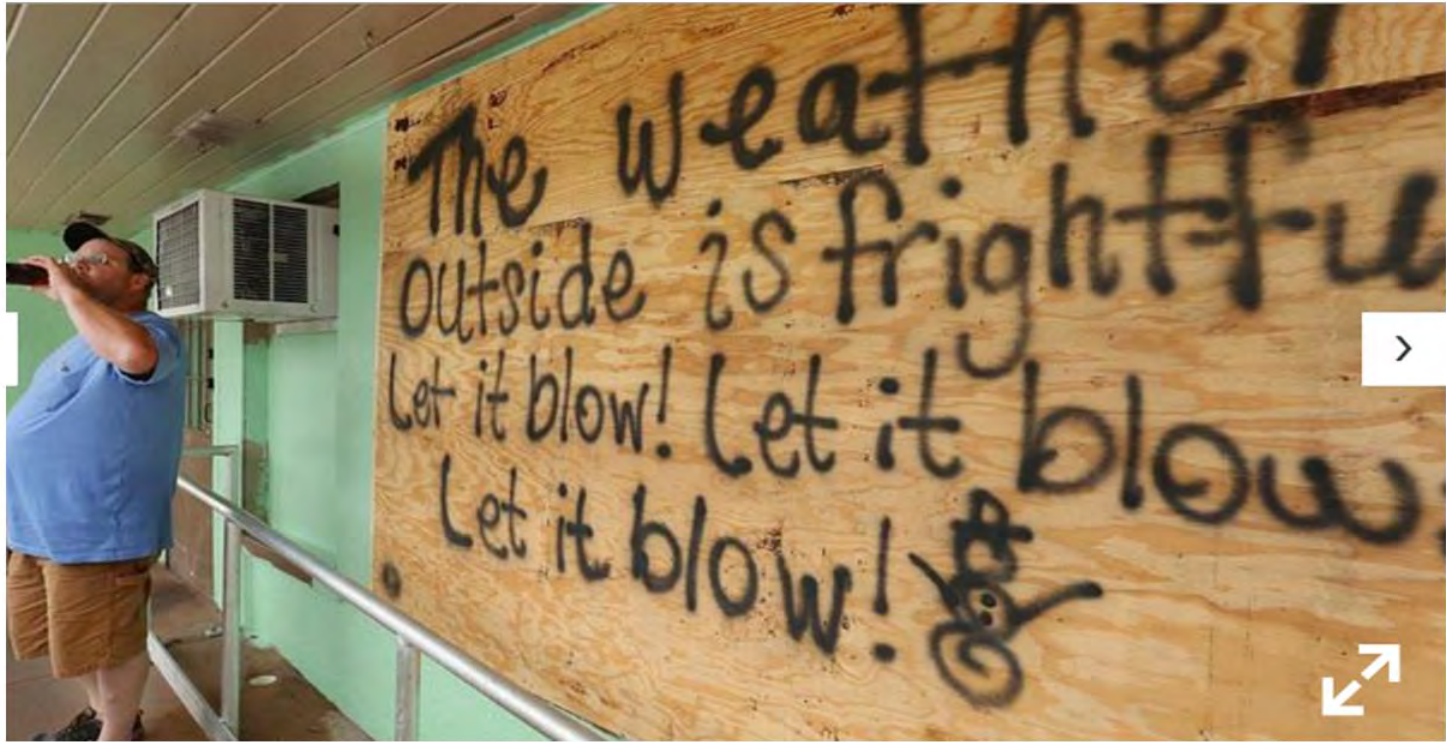 The weather
outside is frightfu
Let it blow! Let it blow!
Let it blow!